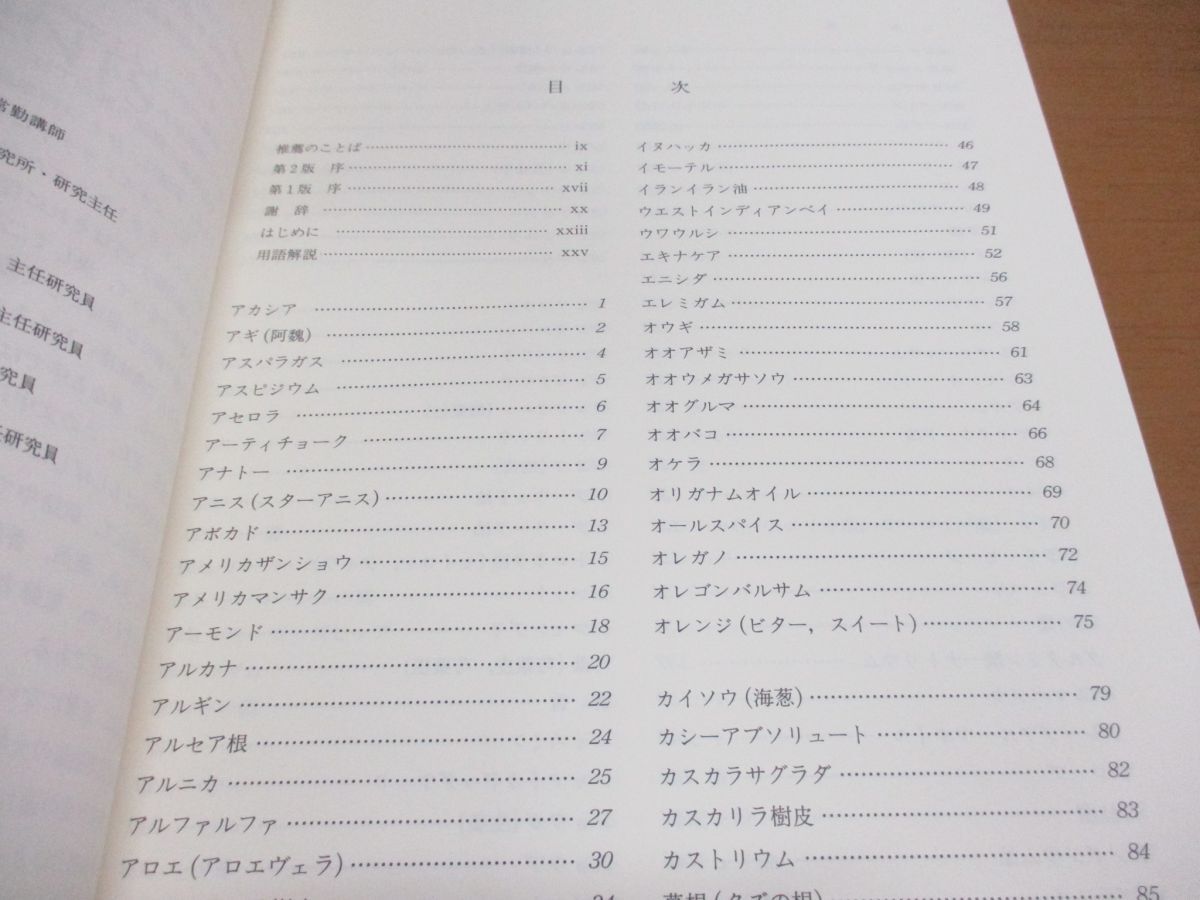 常勤講師
究所・研究主任
主任研究員
主任研究員
究員
任研究員
目 次
推薦のことば……ix
第2版 序……xi
第1版 序……xvii
謝 辞……xx
はじめに……xxiii
用語解説……xxv
アカシア……1
アギ(阿魏)……2
アスパラガス……4
アスピジウム……5
アセロラ……6
アーティチョーク……7
アナトー……9
アニス(スターアニス)……10
アボカド……13
アメリカザンショウ……15
アメリカマンサク……16
アーモンド……18
アルカナ……20
アルギン……22
アルセア根……24
アルニカ……25
アルファルファ……27
アロエ(アロエヴェラ)……30
イヌハッカ……46
イモーテル……47
イランイラン油……48
ウエストインディアンベイ……49
ウワウルシ……51
エキナケア……52
エニシダ……56
エレミガム……57
オウギ……58
オオアザミ……61
オオウメガサソウ……63
オオグルマ……64
オオバコ……66
オケラ……68
オリガナムオイル……69
オールスパイス……70
オレガノ……72
オレゴンバルサム……74
オレンジ(ビター，スイート)……75
カイソウ(海葱)……79
カシーアブソリュート……80
カスカラサグラダ……82
カスカリラ樹皮……83
カストリウム……84
葛根(クズの根)……85